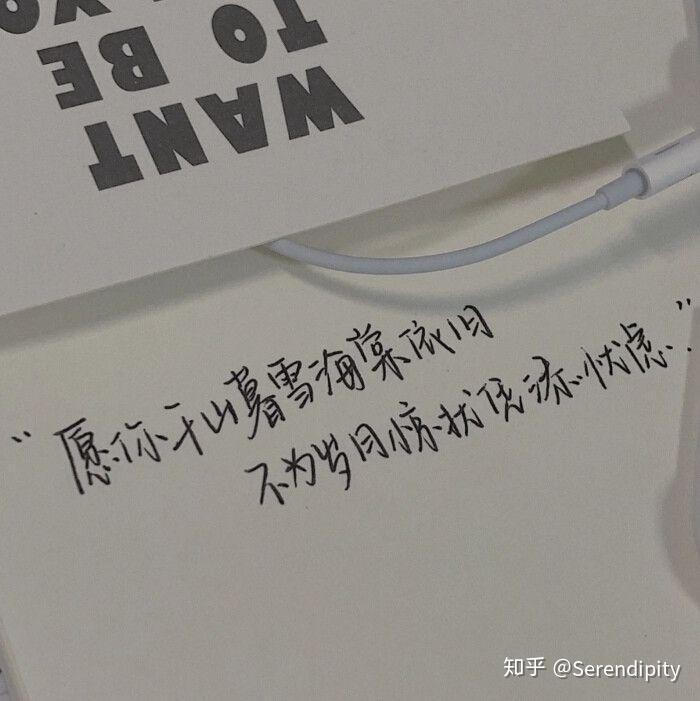 WANT
TO BE
YO
“愿你千山暮雪海棠依旧
不为岁月惊扰凭添忧虑”
知乎 @Serendipity